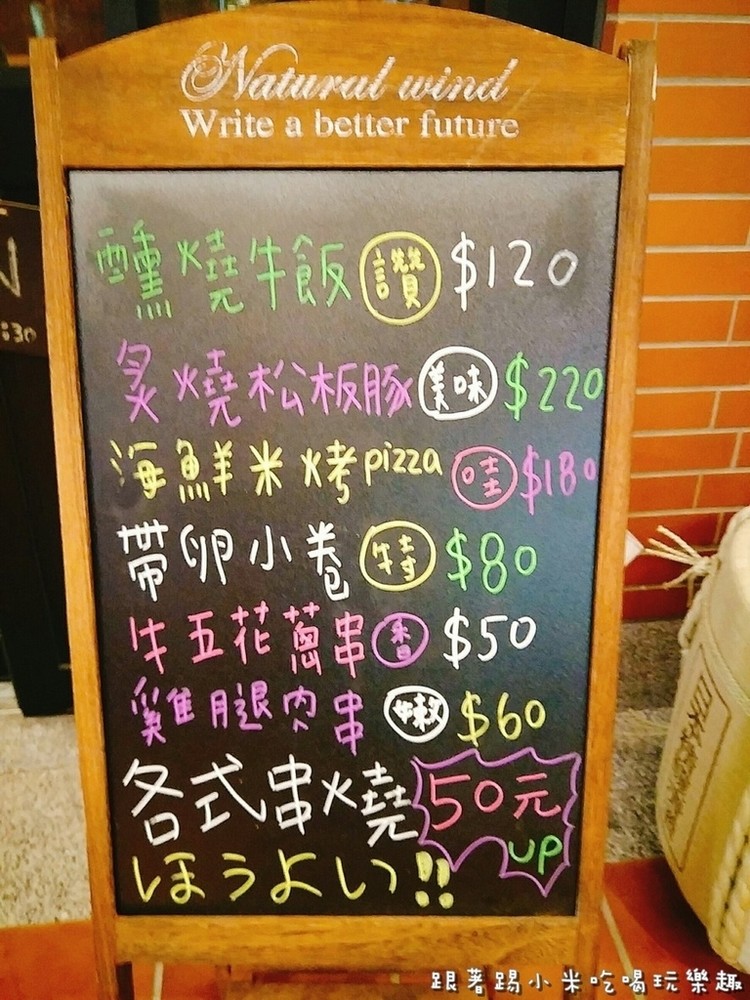 Natural wind
Write a better future
醺燒牛飯 讚 $120
炙燒松板豚 美味 $220
海鮮米烤pizza 哇 $180
帶卵小卷 特 $80
牛五花蔥串 香 $50
雞腿肉串 嫩 $60
各式串燒 50元 up
ほうよい!!
:30
跟著踢小米吃喝玩樂趣